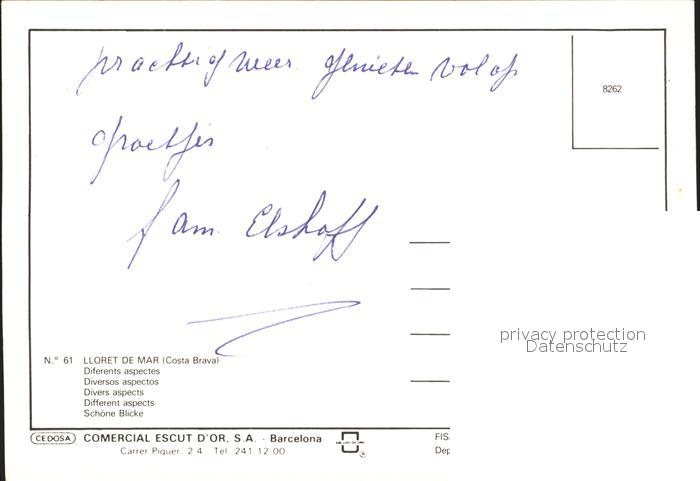 prachtig weer. genieten volop
groetjes
fam. Elshoff
8262
privacy protection
Datenschutz
N.° 61 LLORET DE MAR (Costa Brava)
Diferents aspectes
Diversos aspectos
Divers aspects
Different aspects
Schöne Blicke
CEDOSA COMERCIAL ESCUT D'OR, S.A. - Barcelona
Carrer Piquer, 2 4 Tel. 241 12 00
FIS.
Dep